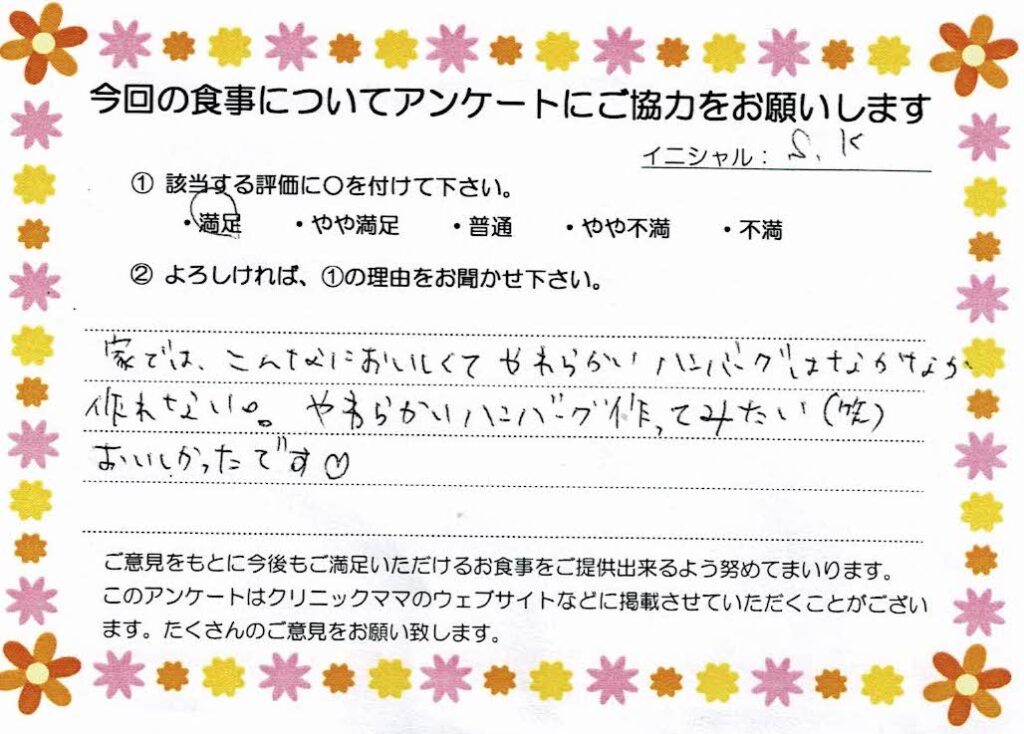 今回の食事についてアンケートにご協力をお願いします
イニシャル： S.K
① 該当する評価に〇を付けて下さい。
・満足 ・やや満足 ・普通 ・やや不満 ・不満
② よろしければ、①の理由をお聞かせ下さい。
家では、こんなにおいしくてやわらかいハンバーグはなかなか
作れない。。やわらかいハンバーグ作ってみたい(笑)
おいしかったです♡
ご意見をもとに今後もご満足いただけるお食事をご提供出来るよう努めてまいります。
このアンケートはクリニックママのウェブサイトなどに掲載させていただくことがござい
ます。たくさんのご意見をお願い致します。